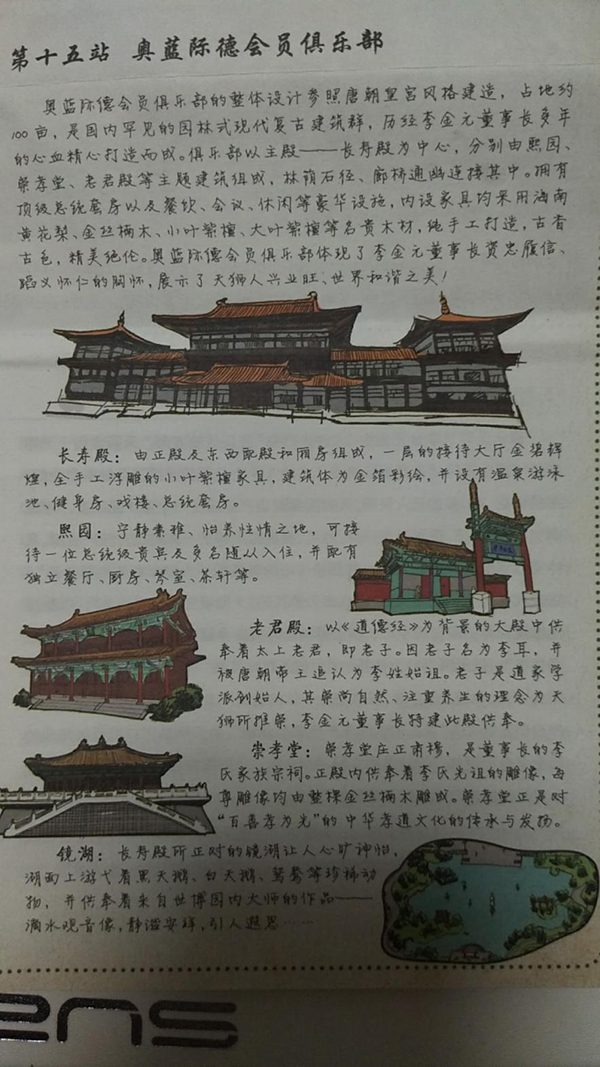 第十五站 奥蓝际德会员俱乐部
奥蓝际德会员俱乐部的整体设计参照唐朝皇宫风格建造，占地约
100亩，是国内罕见的园林式现代复古建筑群，历经李金元董事长多年
的心血精心打造而成。俱乐部以主殿——长寿殿为中心，分别由熙园、
崇孝堂、老君殿等主题建筑组成，林荫石径、廊桥通幽连接其中。拥有
顶级总统套房以及餐饮、会议、休闲等豪华设施，内设家具均采用海南
黄花梨、金丝楠木、小叶紫檀、大叶紫檀等名贵木材，纯手工打造，古香
古色，精美绝伦。奥蓝际德会员俱乐部体现了李金元董事长资忠履信、
蹈义怀仁的胸怀，展示了天狮人兴业旺、世界和谐之美！
长寿殿：由正殿及东西配殿和厢房组成，一层的接待大厅金碧辉
煌，全手工浮雕的小叶紫檀家具，建筑体为金箔彩绘，并设有温泉游泳
池、健身房、戏楼、总统套房。
熙园：宁静素雅、怡养性情之地，可接
待一位总统级贵宾及多名随从入住，并配有
独立餐厅、厨房、琴室、茶轩等。
老君殿：以《道德经》为背景的大殿中供
奉着太上老君，即老子。因老子名为李耳，并
被唐朝帝王追认为李姓始祖。老子是道家学
派创始人，其崇尚自然、注重养生的理念为天
狮所推崇，李金元董事长特建此殿供奉。
崇孝堂：崇孝堂庄正肃穆，是董事长的李
氏家族宗祠。正殿内供奉着李氏先祖的雕像，每
尊雕像均由整棵金丝楠木雕成。崇孝堂正是对
“百善孝为先”的中华孝道文化的传承与发扬。
镜湖：长寿殿所正对的镜湖让人心旷神怡，
湖面上游弋着黑天鹅、白天鹅、鸳鸯等珍稀动
物，并供奉着来自世博园内大师的作品——
滴水观音像，静谧安详，引人遐思……